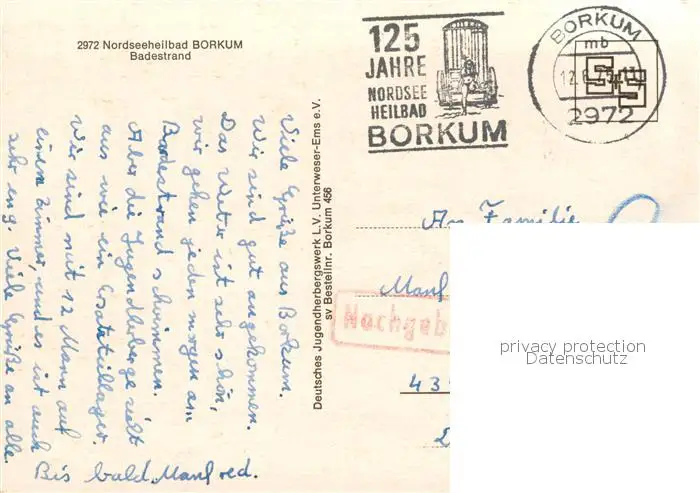 2972 Nordseeheilbad BORKUM
Badestrand
125
JAHRE
NORDSEE
HEILBAD
BORKUM
BORKUM
mb
2972
Viele Grüße aus Borkum.
Wir sind gut angekommen.
Das Wetter ist sehr schön,
wir gehen jeden morgen am
Badestrand schwimmen.
Aber die Jugendherberge sieht
aus wie ein
Wir sind mit 12 Mann auf
einem Zimmer, und es ist auch
sehr eng. Viele Grüße an alle.
Bis bald. Manfred.
Deutsches Jugendherbergswerk L.V. Unterweser-Ems e.V.
sv Bestellnr. Borkum 456
An Familie
Manf
Nachgeb
43
privacy protection
Datenschutz